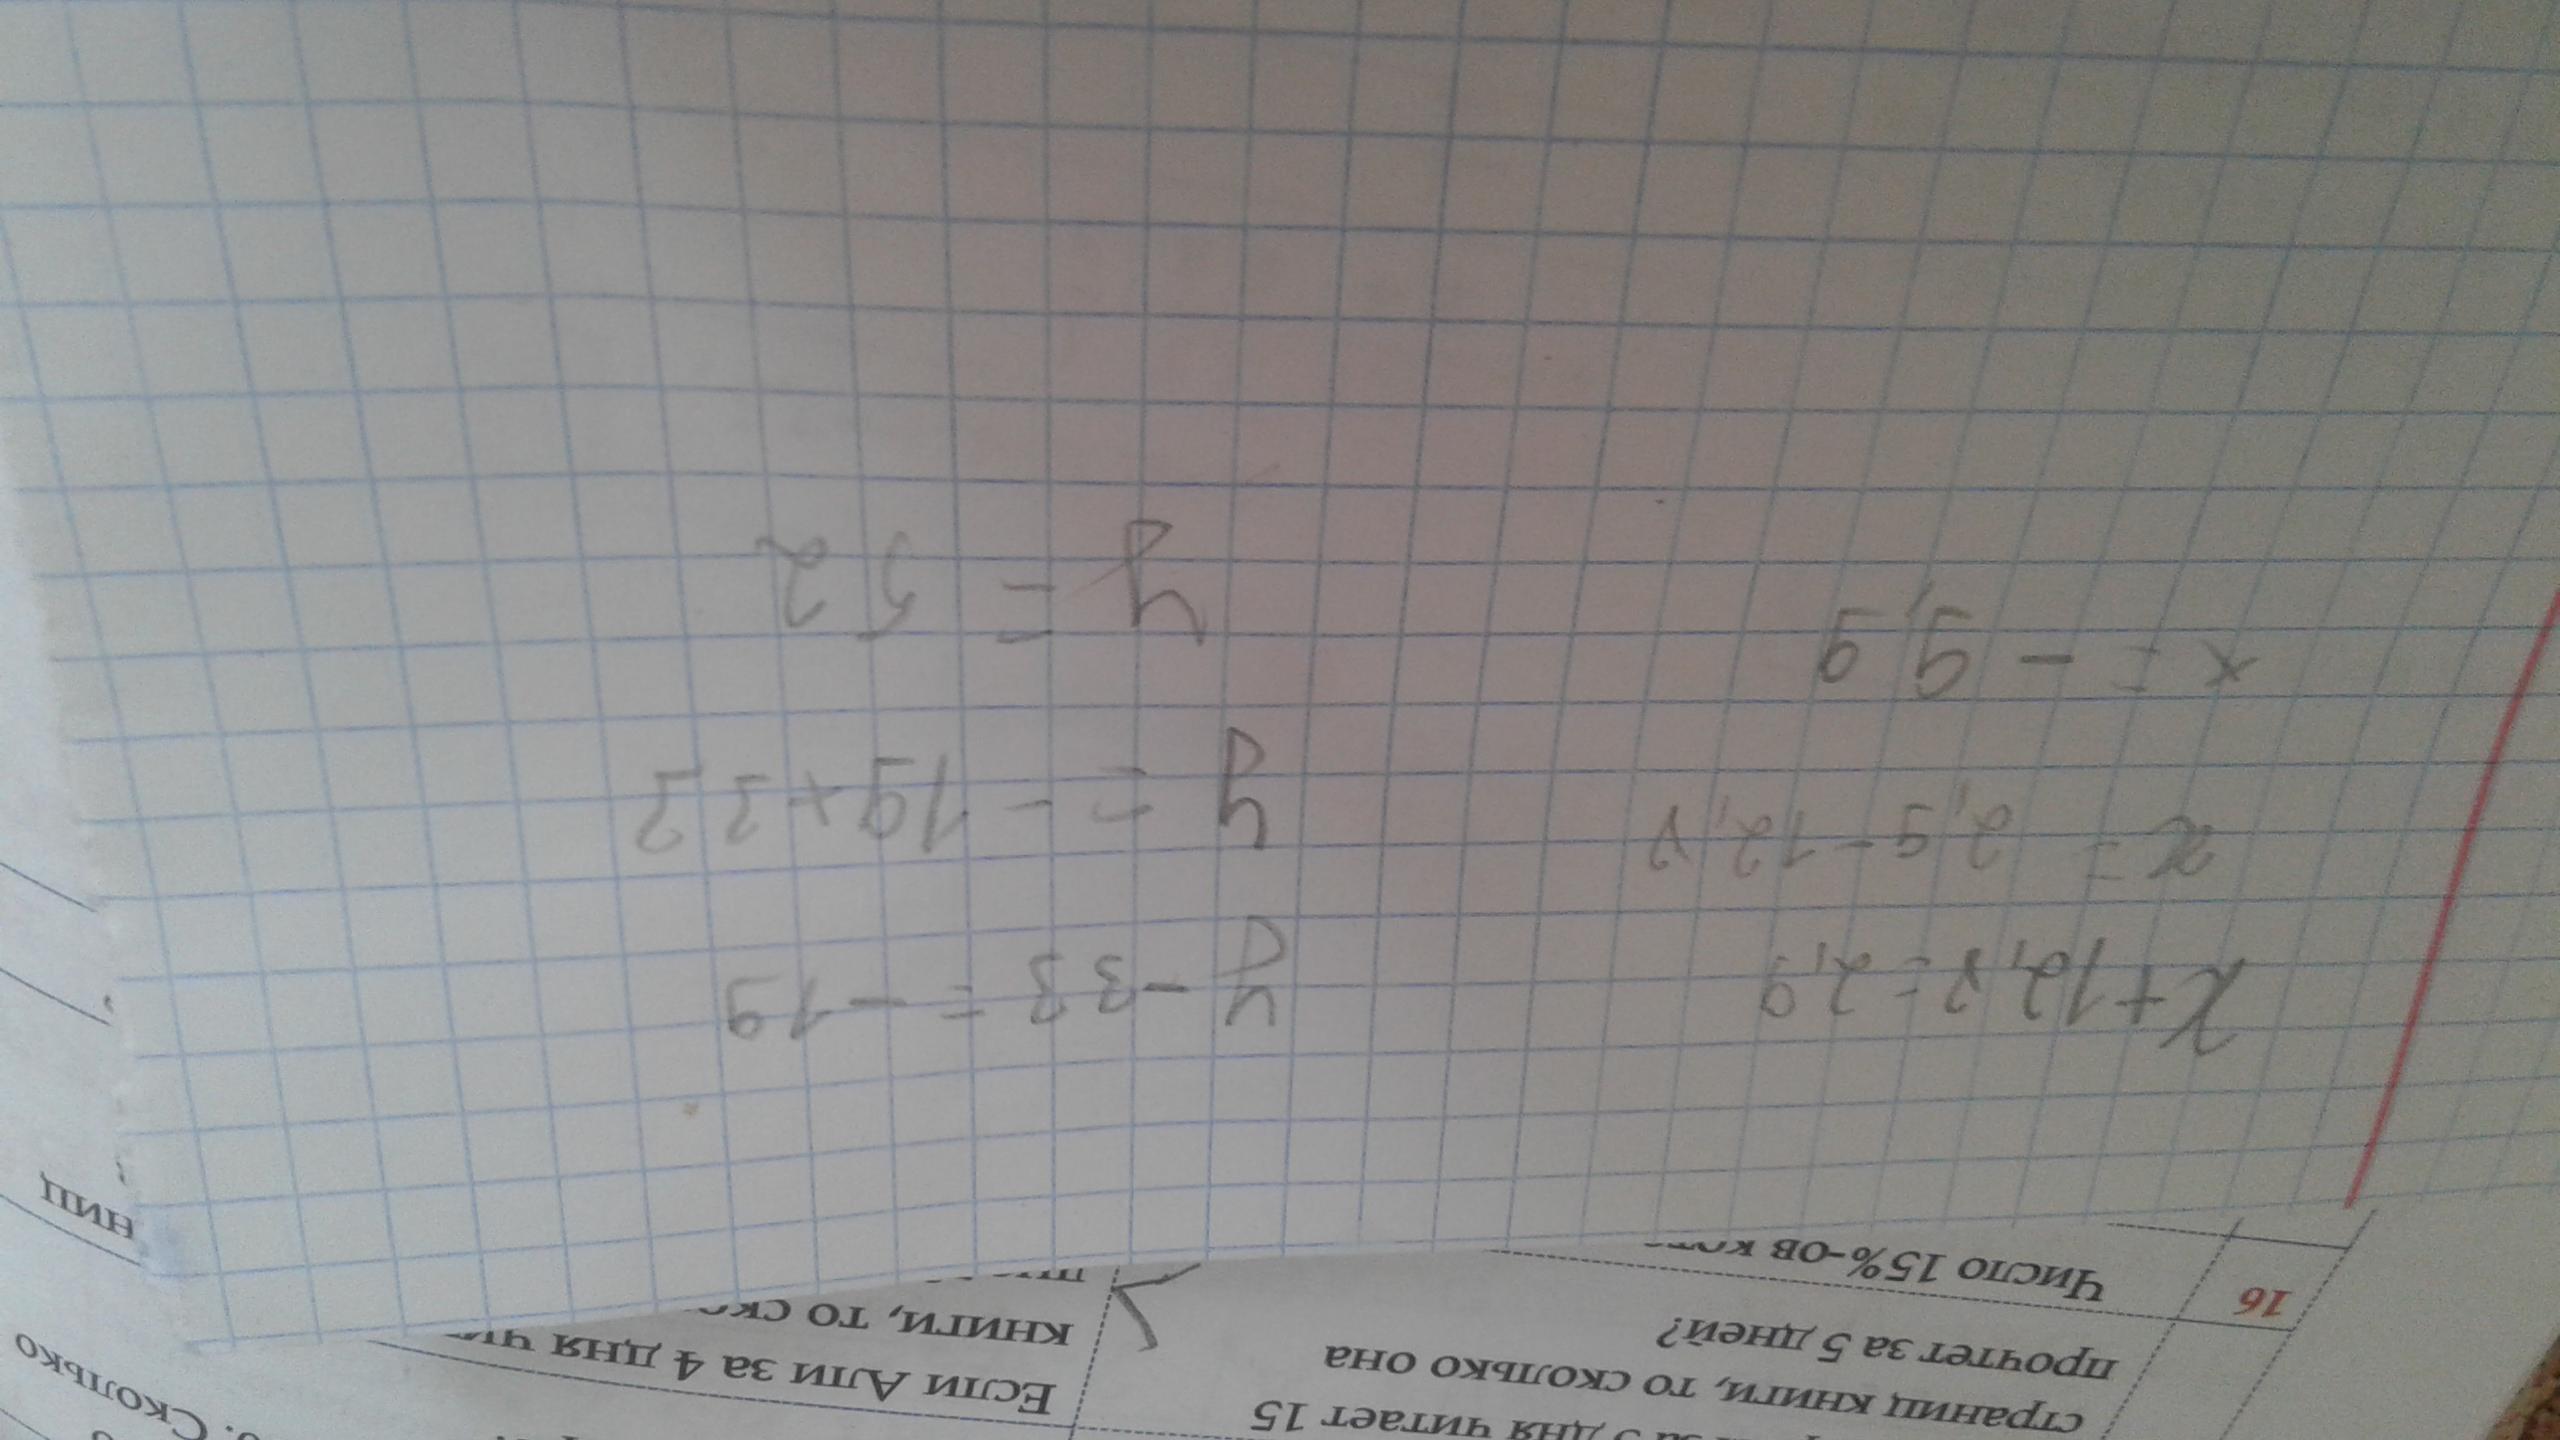 6. Сколько
за 3 дня читает 15
страниц книги, то сколько она
прочтет за 5 дней?
Если Али за 4 дня чи
книги, то ско
16
Число 15%-ов кот
ниц
x+12,8=2,9
x= 2,9-12,8
x = -9,9
y -33 = -19
y = -19+33
y = 52